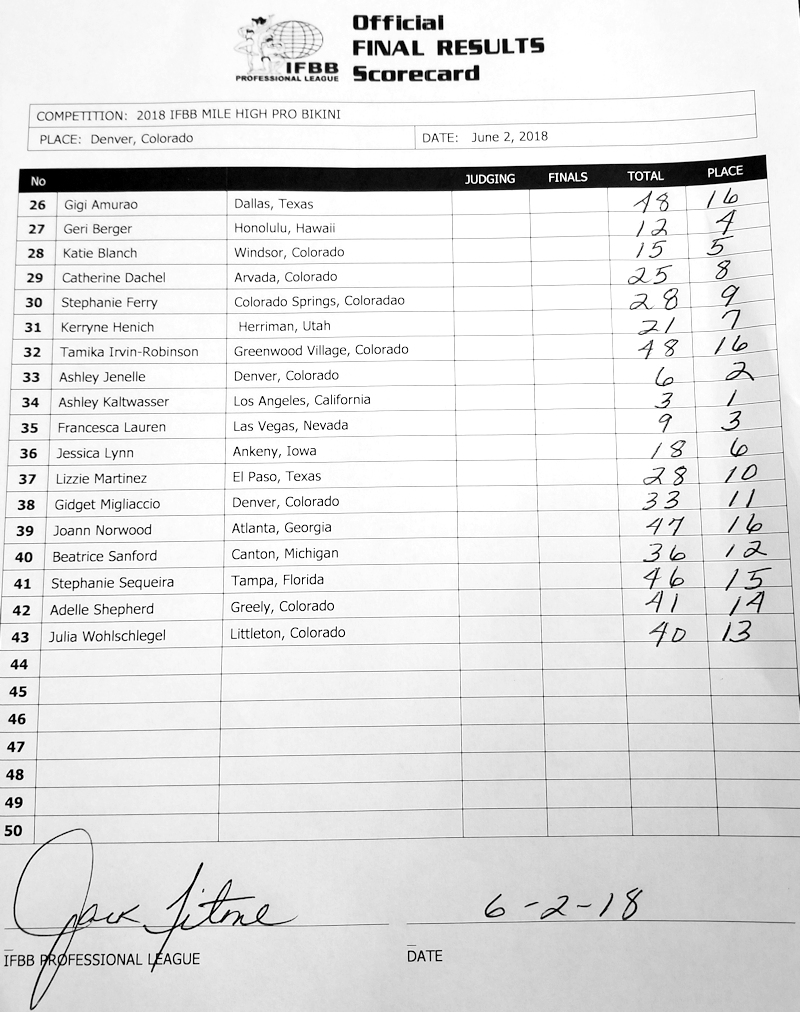 Official
FINAL RESULTS
Scorecard
IFBB
PROFESSIONAL LEAGUE
COMPETITION: 2018 IFBB MILE HIGH PRO BIKINI
PLACE: Denver, Colorado DATE: June 2, 2018
No JUDGING FINALS TOTAL PLACE
26 Gigi Amurao Dallas, Texas 48 16
27 Geri Berger Honolulu, Hawaii 12 4
28 Katie Blanch Windsor, Colorado 15 5
29 Catherine Dachel Arvada, Colorado 25 8
30 Stephanie Ferry Colorado Springs, Coloradao 28 9
31 Kerryne Henich Herriman, Utah 21 7
32 Tamika Irvin-Robinson Greenwood Village, Colorado 48 16
33 Ashley Jenelle Denver, Colorado 6 2
34 Ashley Kaltwasser Los Angeles, California 3 1
35 Francesca Lauren Las Vegas, Nevada 9 3
36 Jessica Lynn Ankeny, Iowa 18 6
37 Lizzie Martinez El Paso, Texas 28 10
38 Gidget Migliaccio Denver, Colorado 33 11
39 Joann Norwood Atlanta, Georgia 47 16
40 Beatrice Sanford Canton, Michigan 36 12
41 Stephanie Sequeira Tampa, Florida 46 15
42 Adelle Shepherd Greely, Colorado 41 14
43 Julia Wohlschlegel Littleton, Colorado 40 13
44
45
46
47
48
49
50
Jack Titone 6-2-18
IFBB PROFESSIONAL LEAGUE DATE